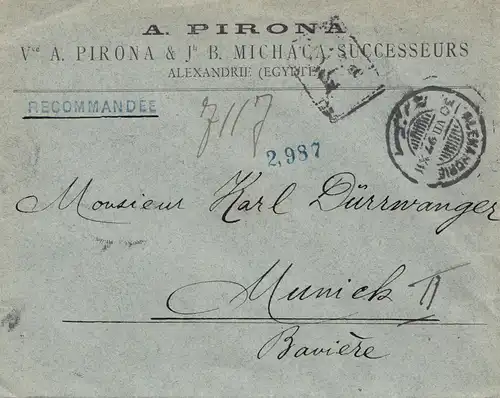 A. PIRONA
Vve A. PIRONA & Jn B. MICHACA, SUCCESSEURS
ALEXANDRIE (EGYPTE)
RECOMMANDEE
7117
2,987
ALEXANDRIE
VII 97
Monsieur Karl Dürrwanger
Munich
Bavière